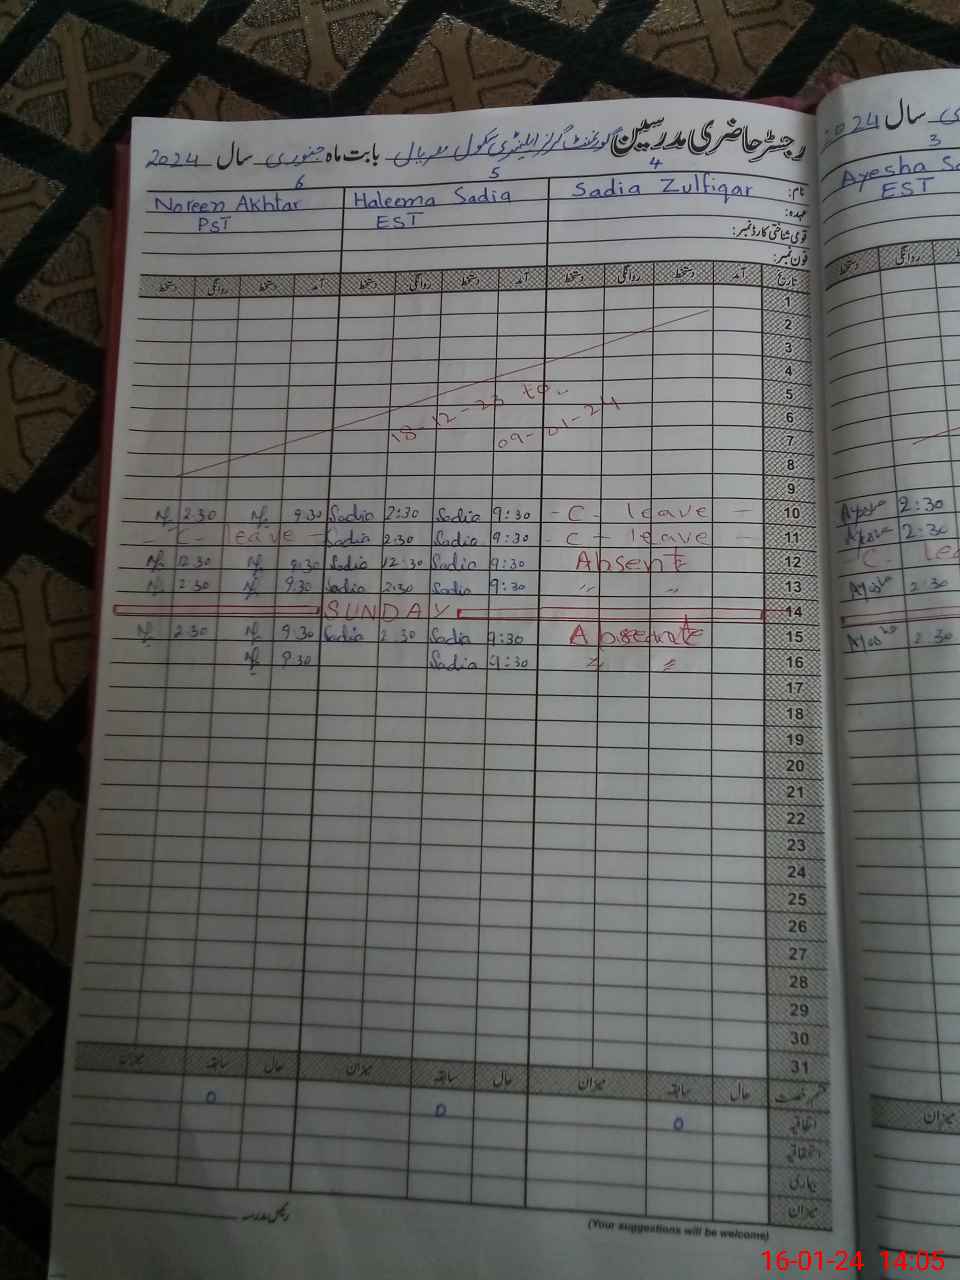 رجسٹر حاضری مدرسین گورنمنٹ گرلز ایلیمنٹری سکول بابت ماہ جنوری سال 2024
4 5 6
نام: Sadia Zulfiqar Haleema Sadia Noreen Akhtar
عہدہ: EST PST
قومی شناختی کارڈ نمبر:
فون نمبر:
تاریخ آمد دستخط روانگی دستخط آمد دستخط روانگی دستخط آمد دستخط روانگی دستخط
1
2
3
4
5
6
7
8
9
18-12-23 to..
09-01-24
10 - C - leave - 9:30 Sadia 2:30 Sadia 9:30 2:30
11 - C - leave - 9:30 Sadia 2:30 Sadia - C - leave -
12 Absent 9:30 Sadia 12:30 Sadia 9:30 12:30
13 〃 〃 9:30 Sadia 2:30 Sadia 9:30 2:30
14 SUNDAY
15 Absent 9:30 Sadia 2:30 Sadia 9:30 2:30
16 〃 〃 9:30 Sadia 9:30
17
18
19
20
21
22
23
24
25
26
27
28
29
30
31
قسم رخصت حال سابقہ میزان حال سابقہ میزان حال سابقہ میزان
اتفاقیہ 0 0 0
استحقاقیہ
بیماری
میزان
رئیس مدرسہ
(Your suggestions will be welcome)
سال 2024
3
Ayesha
EST
روانگی دستخط
2:30
2:30
- C. lea
2:30
2:30
میزان
16-01-24 14:05